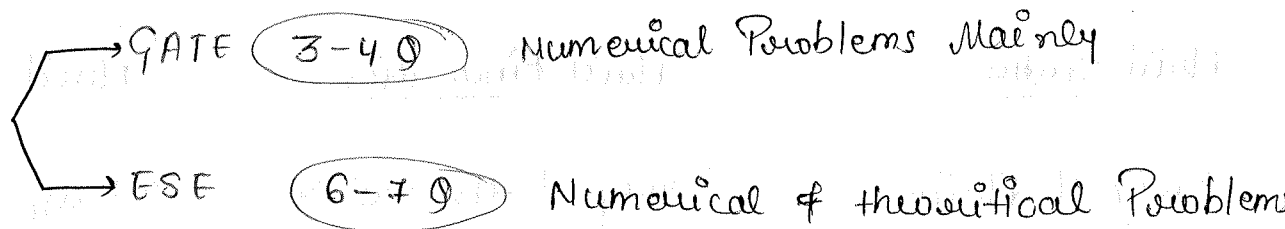 GATE 3-4 Q Numerical Problems Mainly
ESE 6-7 Q Numerical & theoritical Problems